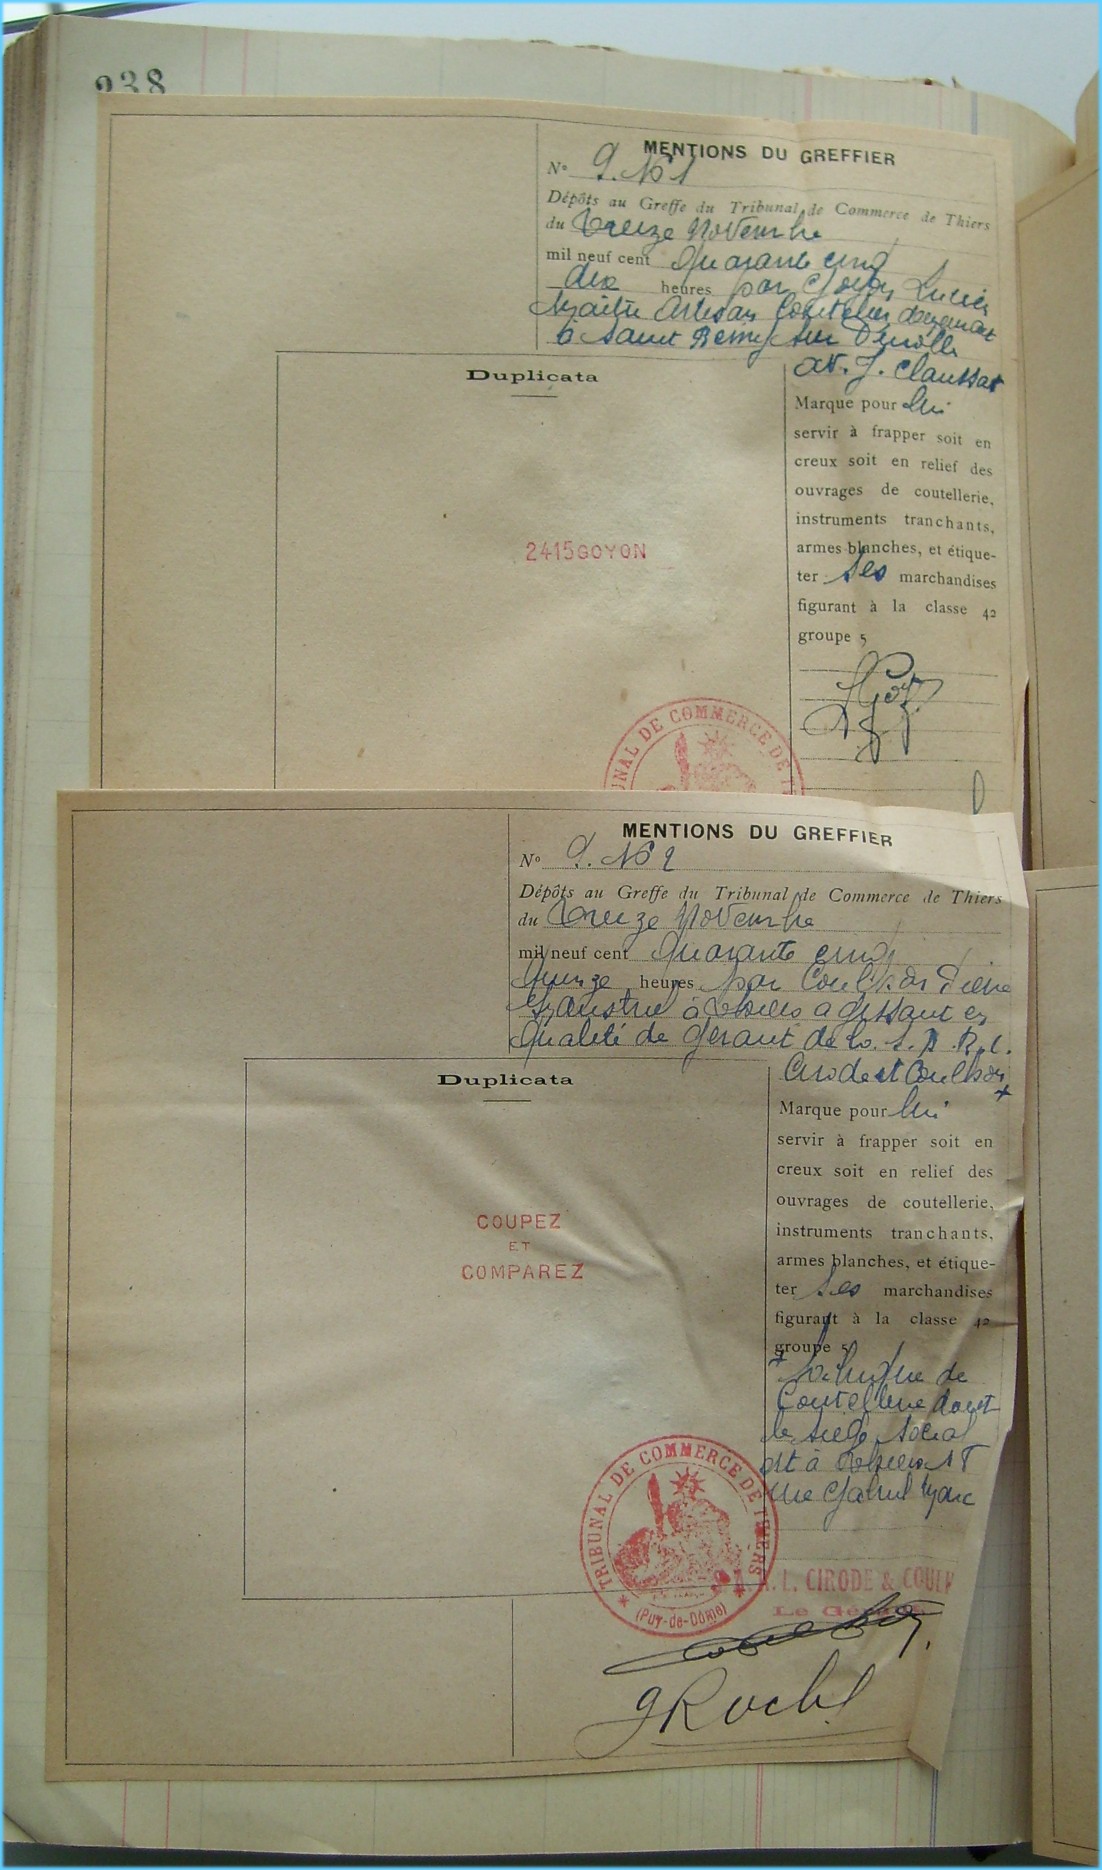 238
MENTIONS DU GREFFIER
No 9. No 1
Dépôts au Greffe du Tribunal de Commerce de Thiers
du Treize Novembre
mil neuf cent quarante cinq
dix heures par Goyon Lucien
Maître Artisan Coutelier demeurant
à Saint Remy sur Durolle
av. J. Claussat
Duplicata
Marque pour lui
servir à frapper soit en
creux soit en relief des
ouvrages de coutellerie,
instruments tranchants,
armes blanches, et étique-
ter ses marchandises
figurant à la classe 42
groupe 5
2415GOYON
TRIBUNAL DE COMMERCE DE
MENTIONS DU GREFFIER
No 9. No 2
Dépôts au Greffe du Tribunal de Commerce de Thiers
du Treize Novembre
mil neuf cent quarante cinq
heures par
à Thiers agissant en
qualité de gérant de la S. A. R. L.
Cirode et
Duplicata
Marque pour lui
servir à frapper soit en
creux soit en relief des
ouvrages de coutellerie,
instruments tranchants,
armes blanches, et étique-
ter ses marchandises
figurant à la classe 42
groupe 5
+ fabrique de
Coutellerie dont
le siège social
est à Thiers
rue Gabriel Marc
COUPEZ
ET
COMPAREZ
TRIBUNAL DE COMMERCE DE THIERS
(Puy-de-Dôme)
.L. CIRODE & COUL
Le Gérant